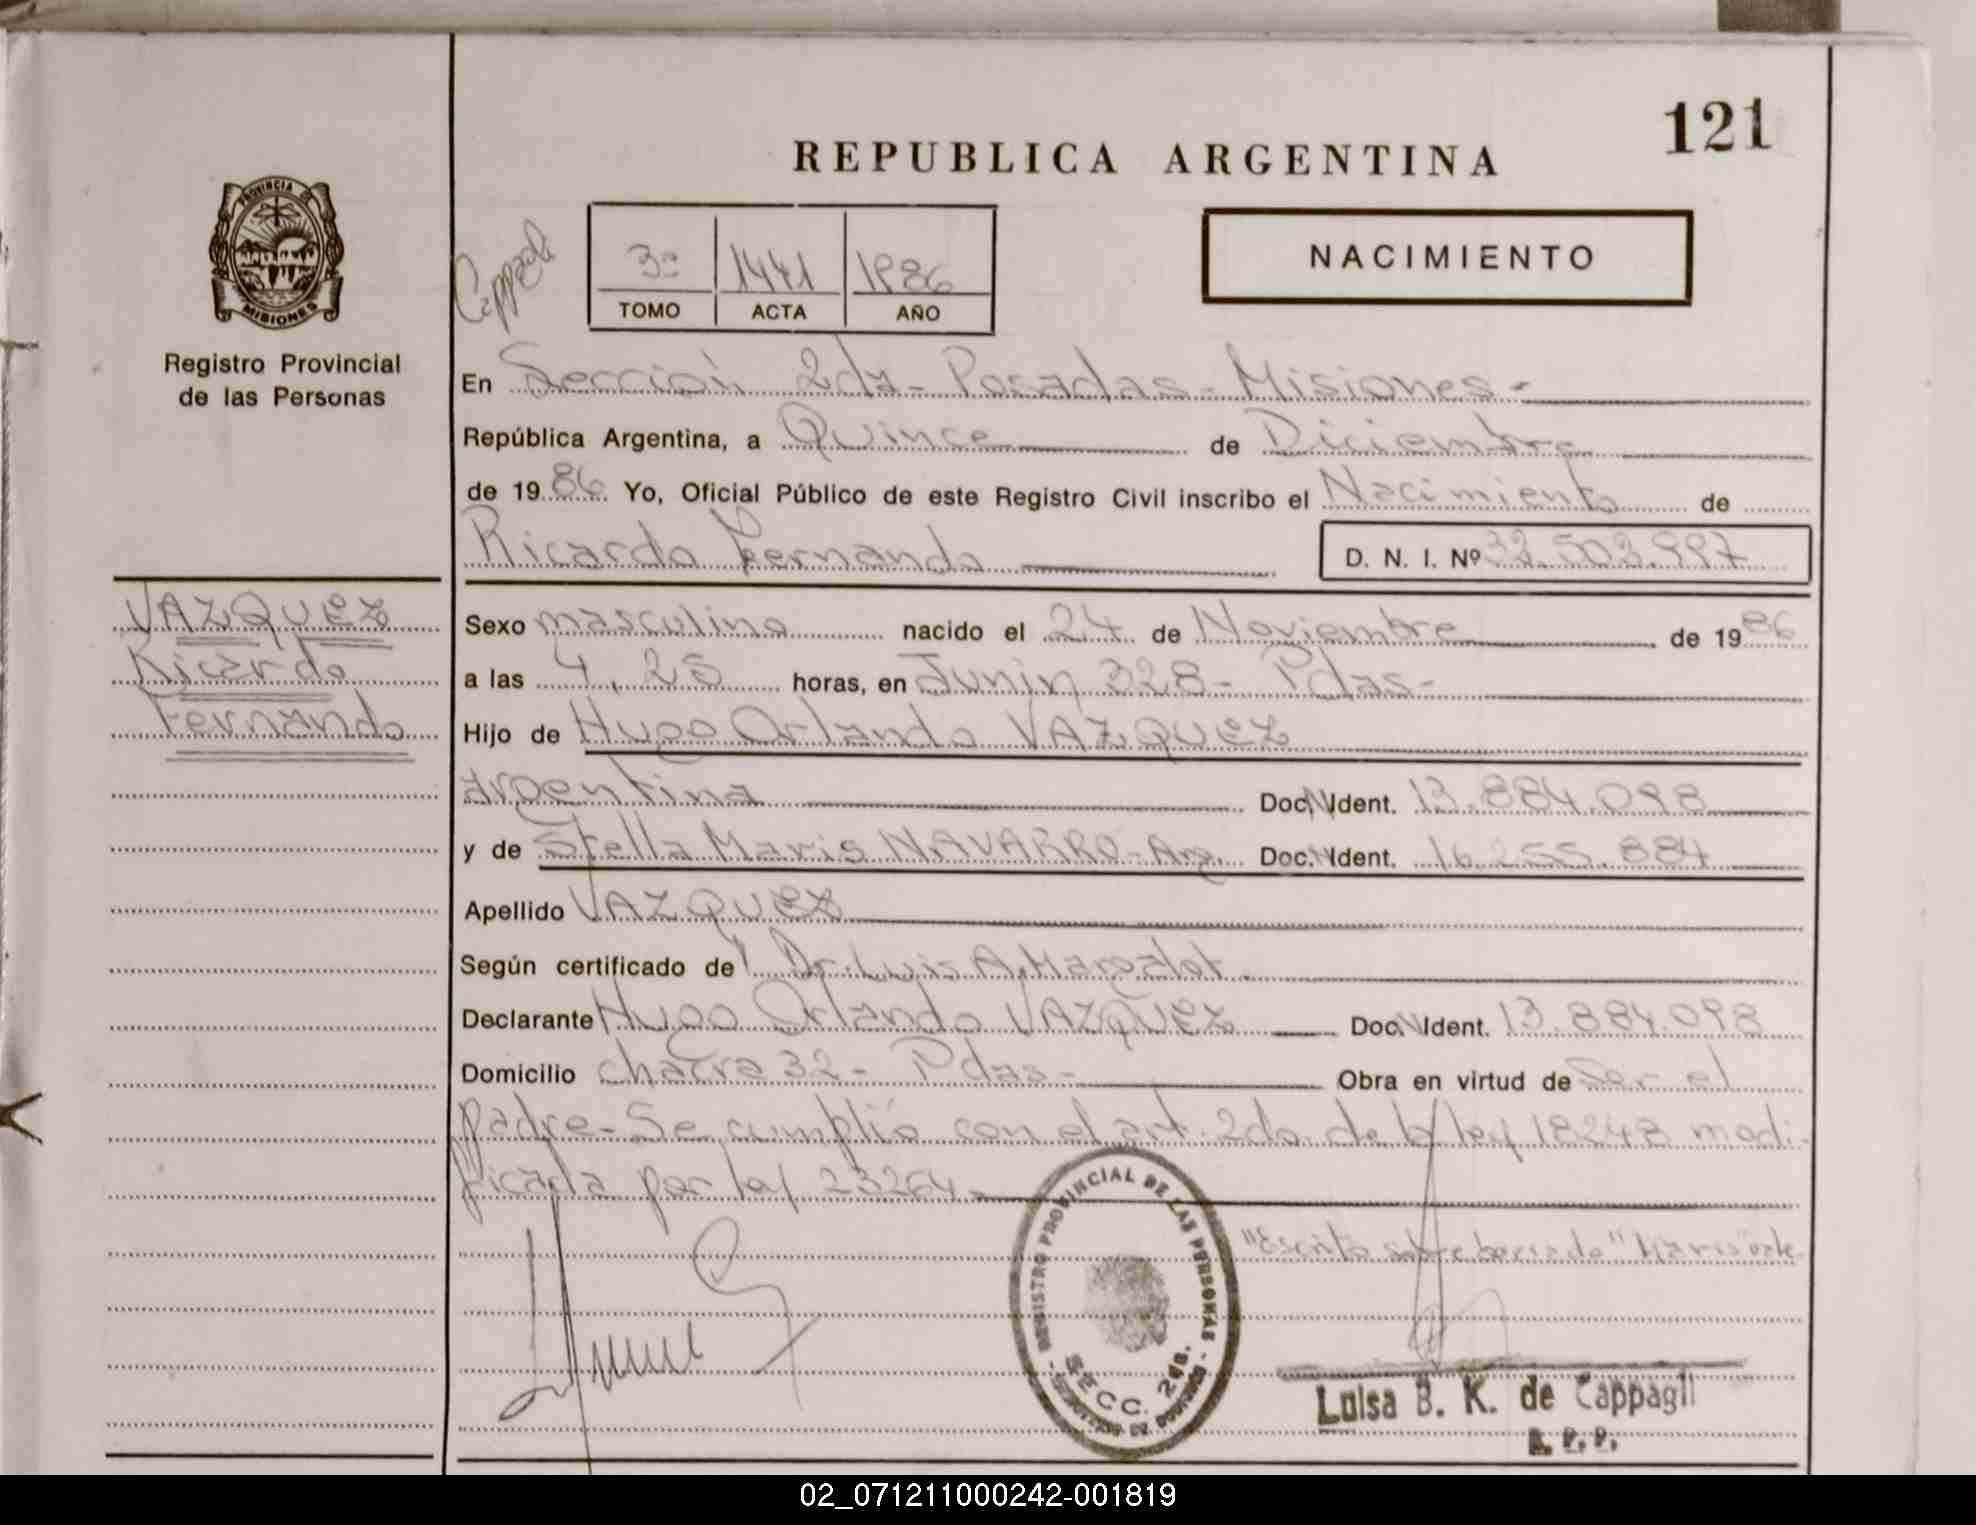 121
REPUBLICA ARGENTINA
PROVINCIA DE
MISIONES
Registro Provincial
de las Personas
3º 1441 1986
TOMO ACTA AÑO
NACIMIENTO
En Sección 2da - Posadas - Misiones -
República Argentina, a Quince de Diciembre
de 1986 Yo, Oficial Público de este Registro Civil inscribo el Nacimiento de
Ricardo Fernando D. N. I. Nº 32.503.997
VAZQUEZ
Ricardo
Fernando
Sexo masculino nacido el 24 de Noviembre de 1986
a las 4,25 horas, en Junin 328 - Pdas -
Hijo de Hugo Orlando VAZQUEZ
argentina Doc. Ident. 13.884.098
y de Stella Maris NAVARRO - Arg. Doc. Ident. 16.255.884
Apellido VAZQUEZ
Según certificado de Dr. Luis A.
Declarante Hugo Orlando VAZQUEZ Doc. Ident. 13.884.098
Domicilio chacra 32 - Pdas - Obra en virtud de Ser el
padre - Se cumplió con el art. 2do de la ley 18248 modi-
ficada por ley 23264 -
"Escrito sobre borrado" "Maris" vale
REGISTRO PROVINCIAL DE LAS PERSONAS
SECC. 2da.
Luisa B. K. de Cappagli
02_071211000242-001819